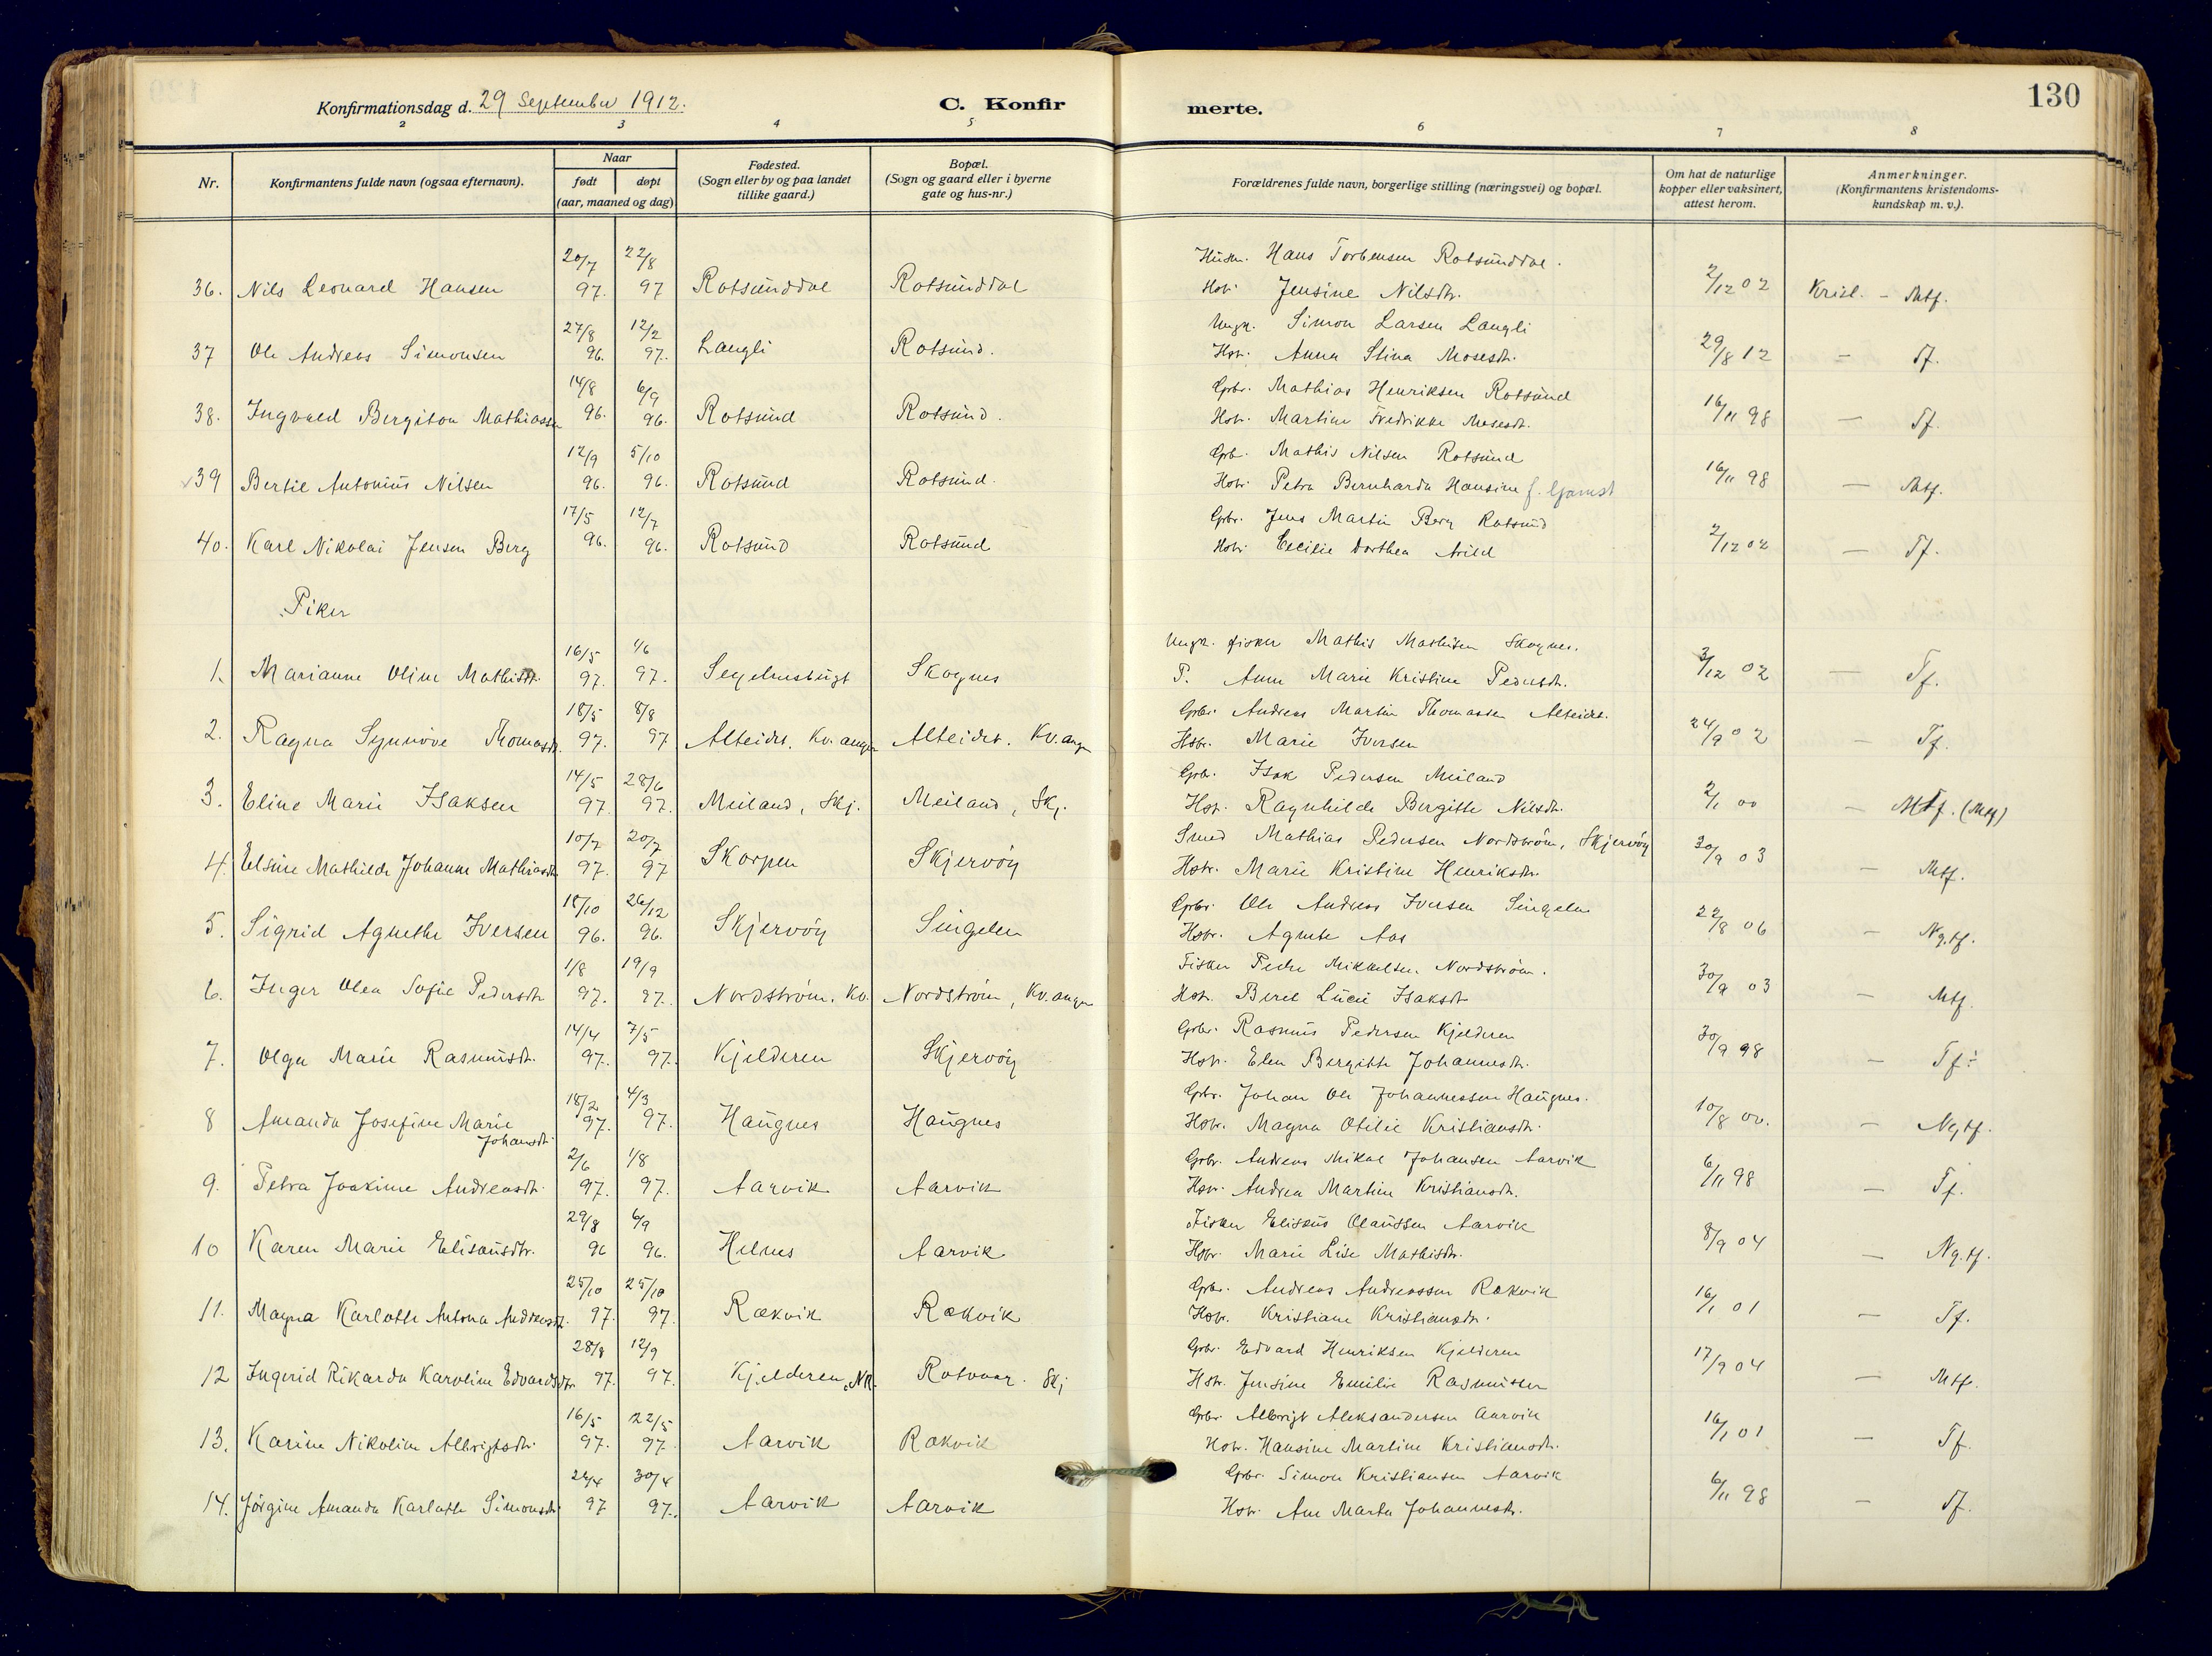 130
Konfirmationsdag d. 29 September 1912.
C. Konfirmerte.
2 3 4 5 6 7 8
Nr.
Konfirmantens fulde navn (ogsaa efternavn).
Naar
født døpt
(aar, maaned og dag)
Fødested.
(Sogn eller by og paa landet
tillike gaard.)
Bopæl.
(Sogn og gaard eller i byerne
gate og hus-nr.)
Forældrenes fulde navn, borgerlige stilling (næringsvei) og bopæl.
Om hat de naturlige
kopper eller vaksinert,
attest herom.
Anmerkninger.
(Konfirmantens kristendoms-
kundskap m. v.).
20/7 22/8 Husm. Hans Torbensen Rotsunddal.
36. Nils Leonard Hansen 97. 97 Rotsunddal Rotsunddal Hstr. Jensine Nilsdtr. 2/12 02 Krisl. - Mtf.
27/8 12/2 Ungk. Simon Larsen Langli
37 Ole Andreas Simonsen 96. 97. Langli Rotsund. Hstr. Anna Stina Mosesdtr. 29/8 12 — Tf.
14/8 6/9 Grbr. Mathias Henriksen Rotsund
38. Ingvald Bergiton Mathiassen 96. 96. Rotsund Rotsund. Hstr. Martine Fredrikke Mosesdtr. 16/11 98 — Tf.
12/9 5/10 Gbr. Mathis Nilsen Rotsund
39 Bertil Antonius Nilsen 96. 96. Rotsund Rotsund. Hstr. Petra Bernharda Hansine f. Gamst 16/11 98 — Mtf.
17/5 12/7 Gbr. Jens Martin Berg Rotsund
40. Karl Nikolai Jensen Berg 96. 96. Rotsund Rotsund Hstr. Cecilie Dorthea Arild 2/12 02 — Tf.
Piker
16/5 1/6 Ungk. fisker Mathis Mathisen Skognes.
1. Marianne Oline Mathisdtr. 97. 97. Segelnesbugt Skognes P. Anne Marie Kristine Pedersdtr. 3/12 02 — Tf.
18/5 8/8 Grbr. Andreas Martin Thomassen Alteidet.
2. Ragna Synnöve Thomasdtr. 97. 97 Alteidet. Kv.angen Alteidet. Kv.angen Hstr. Marie Iversen 24/9 02 — Tf.
14/5 28/6 Grbr. Isak Pedersen Meiland
3. Eline Marie Isaksen 97. 97. Meiland, Skj. Meiland, Skj. Hstr. Ragnhilde Bergitte Nilsdtr. 2/1 00 — Mtf. (Mg)
10/7 20/7 Smed Mathias Pedersen Nordström, Skjervöy
4. Elsine Mathilde Johanne Mathiasdtr. 97. 97 Skorpen Skjervöy Hstr. Marie Kristine Henriksdtr. 30/9 03 — Mtf.
18/10 26/12 Grbr. Ole Andreas Iversen Singelen
5. Sigrid Agnethe Iversen 96. 96. Skjervöy Singelen Hstr. Agnete Aas 22/8 06 — Ng.tf.
1/8 19/9 Fisker Peder Mikkelsen Nordström.
6. Inger Olea Sofie Pedersdtr 97. 97. Nordström. Kv. Nordström, Kv.angen Hstr. Beret Lucie Isaksdtr 30/9 03 — Mtf.
14/4 7/5 Grbr. Rasmus Pedersen Kjelderen
7. Olga Marie Rasmusdtr. 97. 97. Kjelderen Skjervöy Hstr. Elen Bergitte Johannesdtr. 30/9 98 — Tf÷
18/2 4/3 Grbr. Johan Ole Johannessen Haugnes.
8 Amanda Josefine Marie Johansdtr. 97. 97. Haugnes Haugnes Hstr. Magna Otilie Kristiansdtr. 10/8 00. — Ngtf.
2/6 1/8 Grbr. Andreas Mikal Johansen Aarvik
9. Petra Joakime Andreasdtr. 97. 97. Aarvik Aarvik Hstr. Andrea Martine Kristiansdtr. 6/11 98 — Tf.
29/8 6/9 Fisker Elisæus Olaussen Aarvik
10 Karen Marie Elisæusdtr. 96 96. Helnes Aarvik Hstr. Marie Lise Mathisdtr. 8/9 04 — Ng.tf.
25/10 25/10 Grbr. Andreas Andreassen Rakvik
11. Magna Karlotte Antona Andreasdtr. 97. 97. Rakvik Rakvik Hstr. Kristiane Kristiansdtr. 16/1 01 — Tf.
28/8 12/9 Grbr. Edvard Henriksen Kjelderen
12 Ingerid Rikarda Karoline Edvardsdtr. 97. 97. Kjelderen, NR. Rotvaar. Skj Hstr. Jensine Emilie Rasmussen 17/9 04 — Mtf.
16/5 22/5 Grbr. Albrigt Aleksandersen Aarvik
13. Karine Nikoline Albrigtsdtr. 97. 97. Aarvik Rakvik Hstr. Hansine Martine Kristiansdtr. 16/1 01 — Tf.
26/4 30/4 Grbr. Simon Kristiansen Aarvik
14. Jörgine Amanda Karlotte Simonsdtr. 97 97. Aarvik Aarvik Hstr. Ane Marta Johannesdtr. 6/11 98 — Tf.